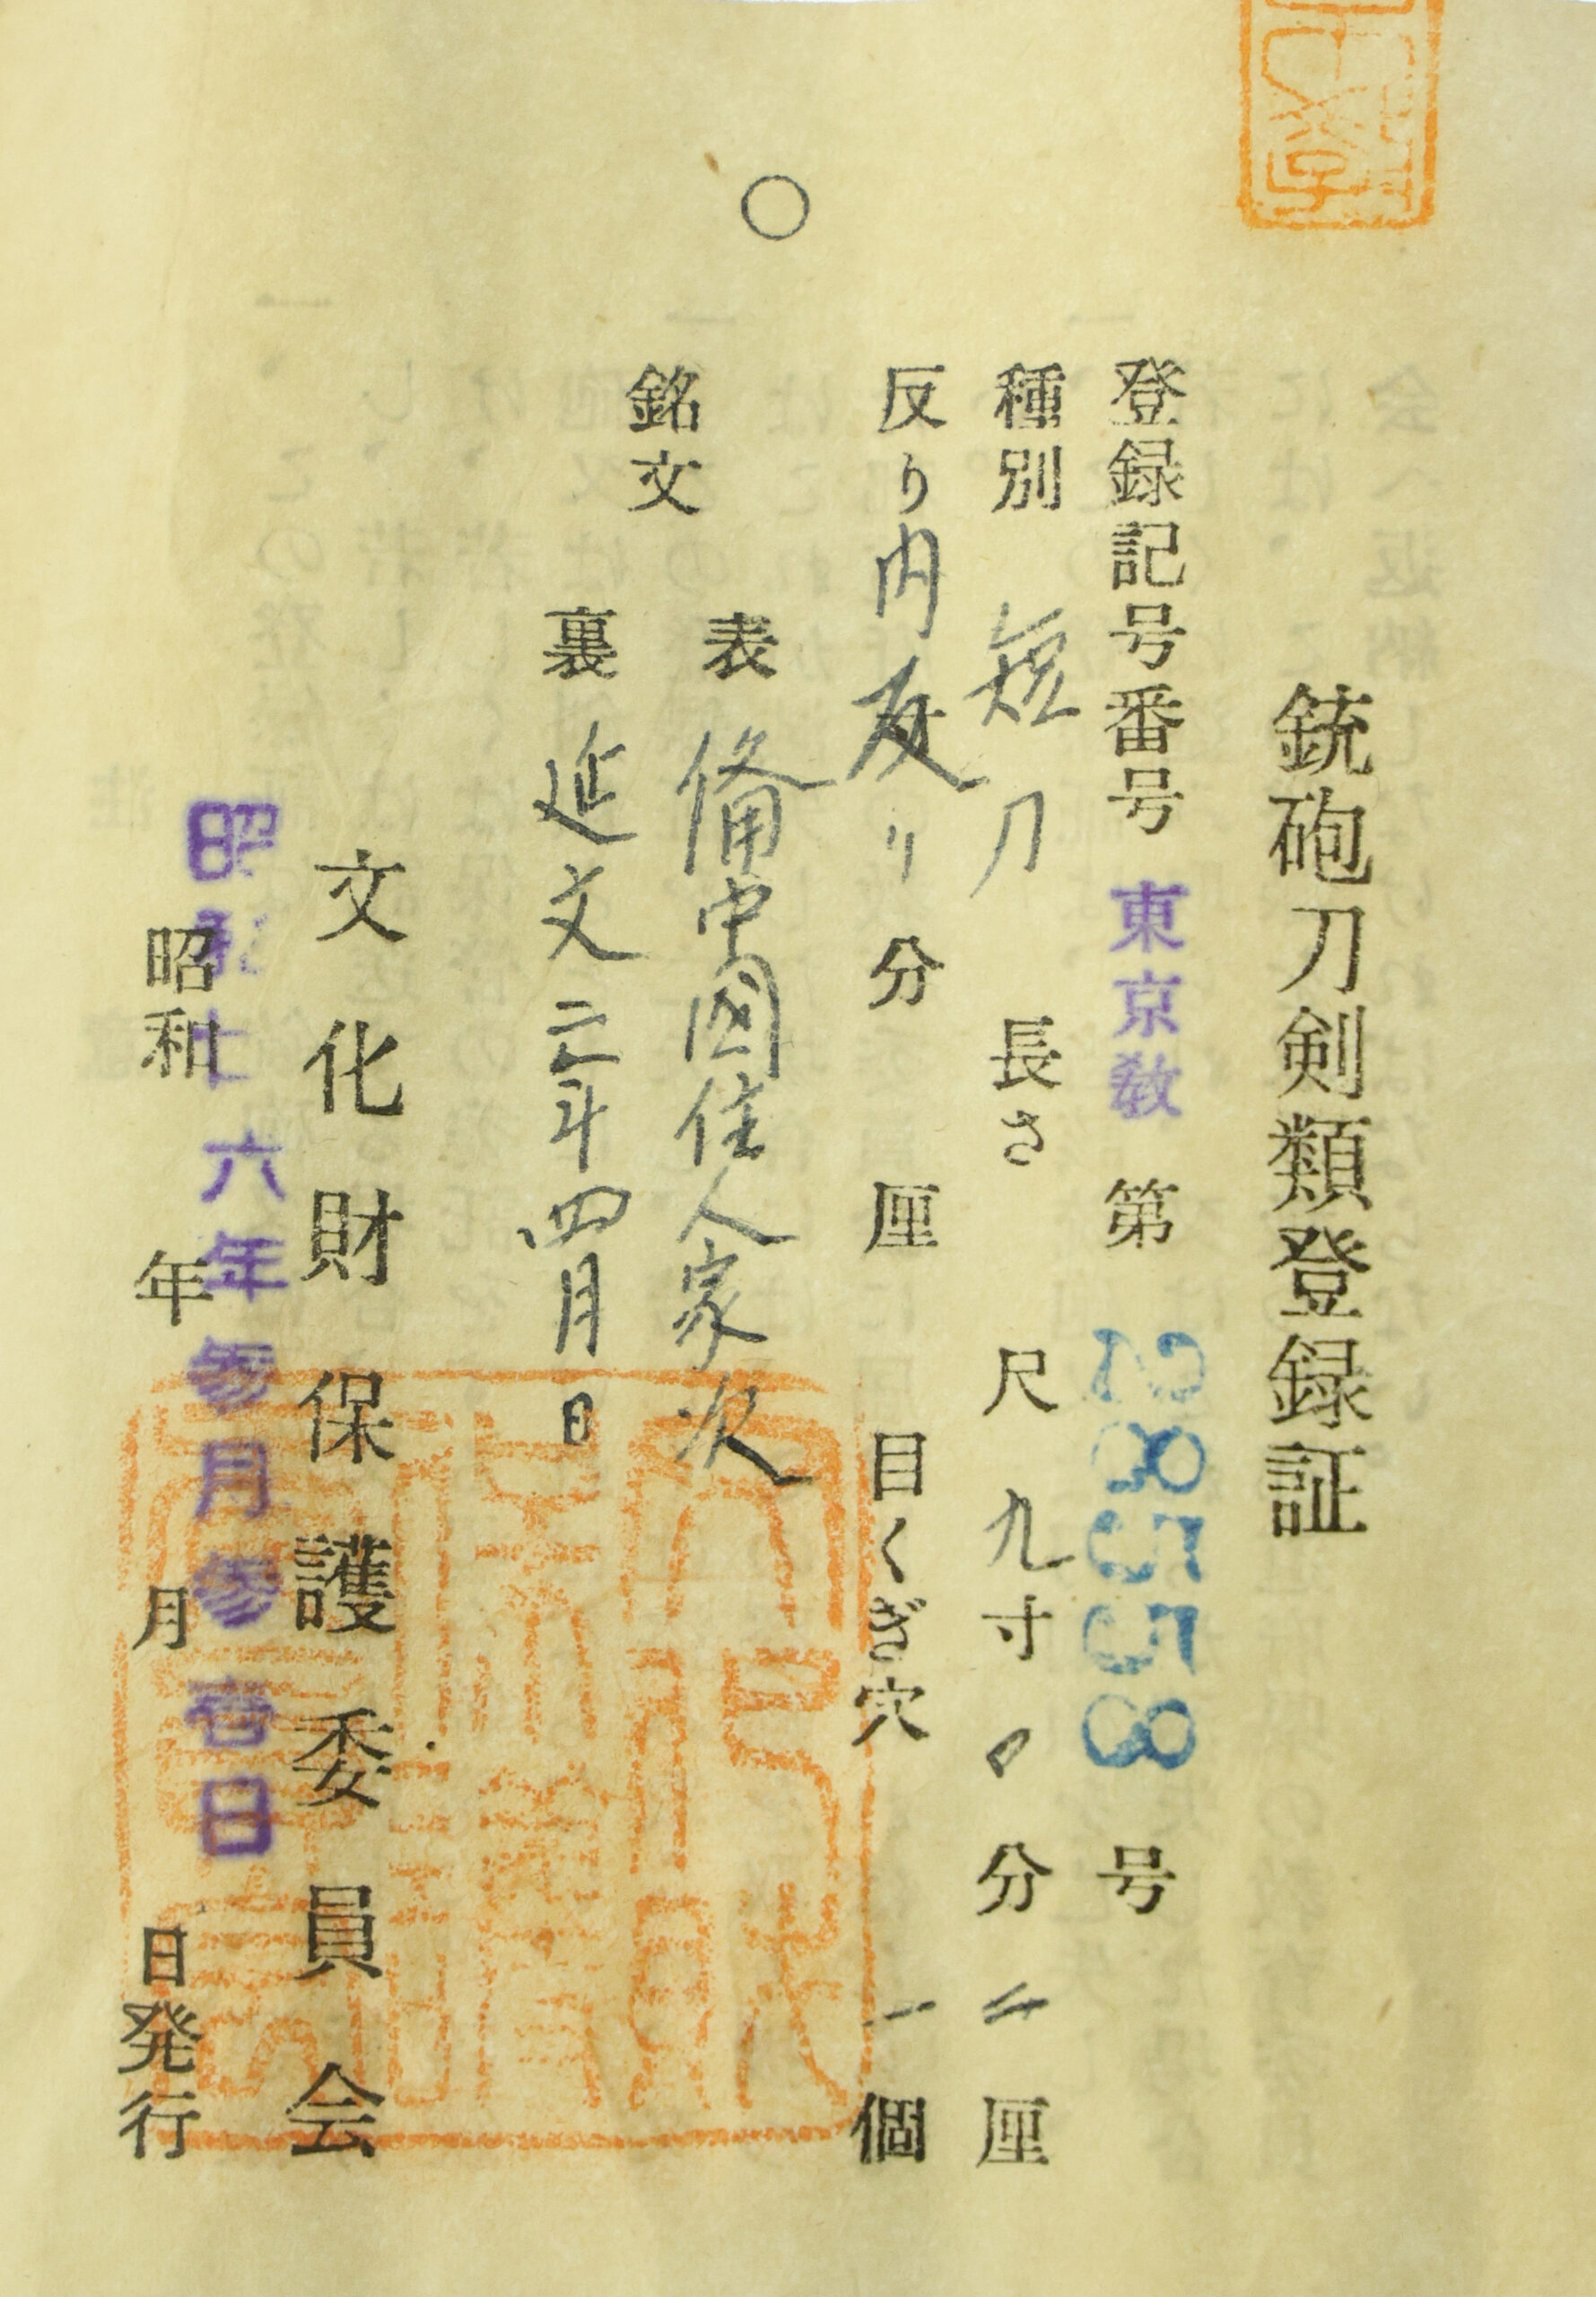 銃砲刀剣類登録証
登録記号番号 東京教 第 28558 号
種別 短刀 長さ 尺 九寸 分 厘
反り 内反り 分 厘 目くぎ穴 一個
銘文
表 備中國住人家次
裏 延文二年四月日
文化財保護委員会
昭和 六年参月参 日
昭和 年 月 日発行